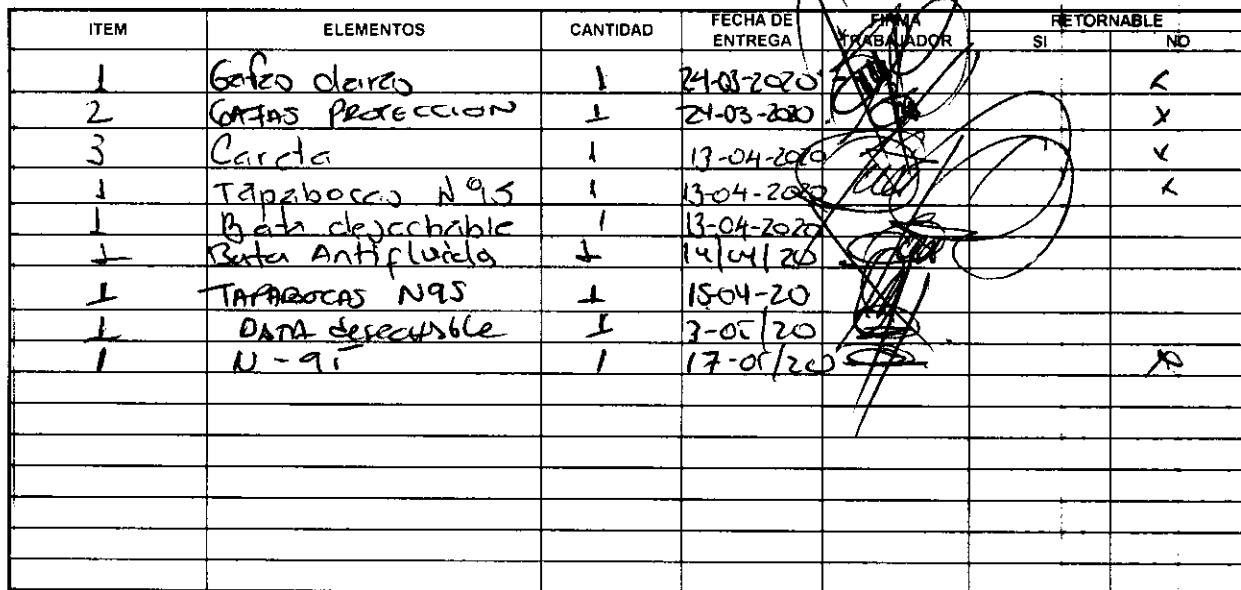 ITEM ELEMENTOS CANTIDAD FECHA DE ENTREGA FIRMA TRABAJADOR RETORNABLE SI NO
1 1 24-03-2020 x
2 GAFAS PROTECCION 1 24-03-2020 x
3 Careta 1 13-04-2020 x
1 Tapabocas N95 1 13-04-2020 x
1 Bata desechable 1 13-04-2020
1 Bata Antifluido 1 14/04/20
1 TAPABOCAS N95 1 15-04-20
1 BATA desechable 1 3-05/20
1 N-95 1 17-05/20 x